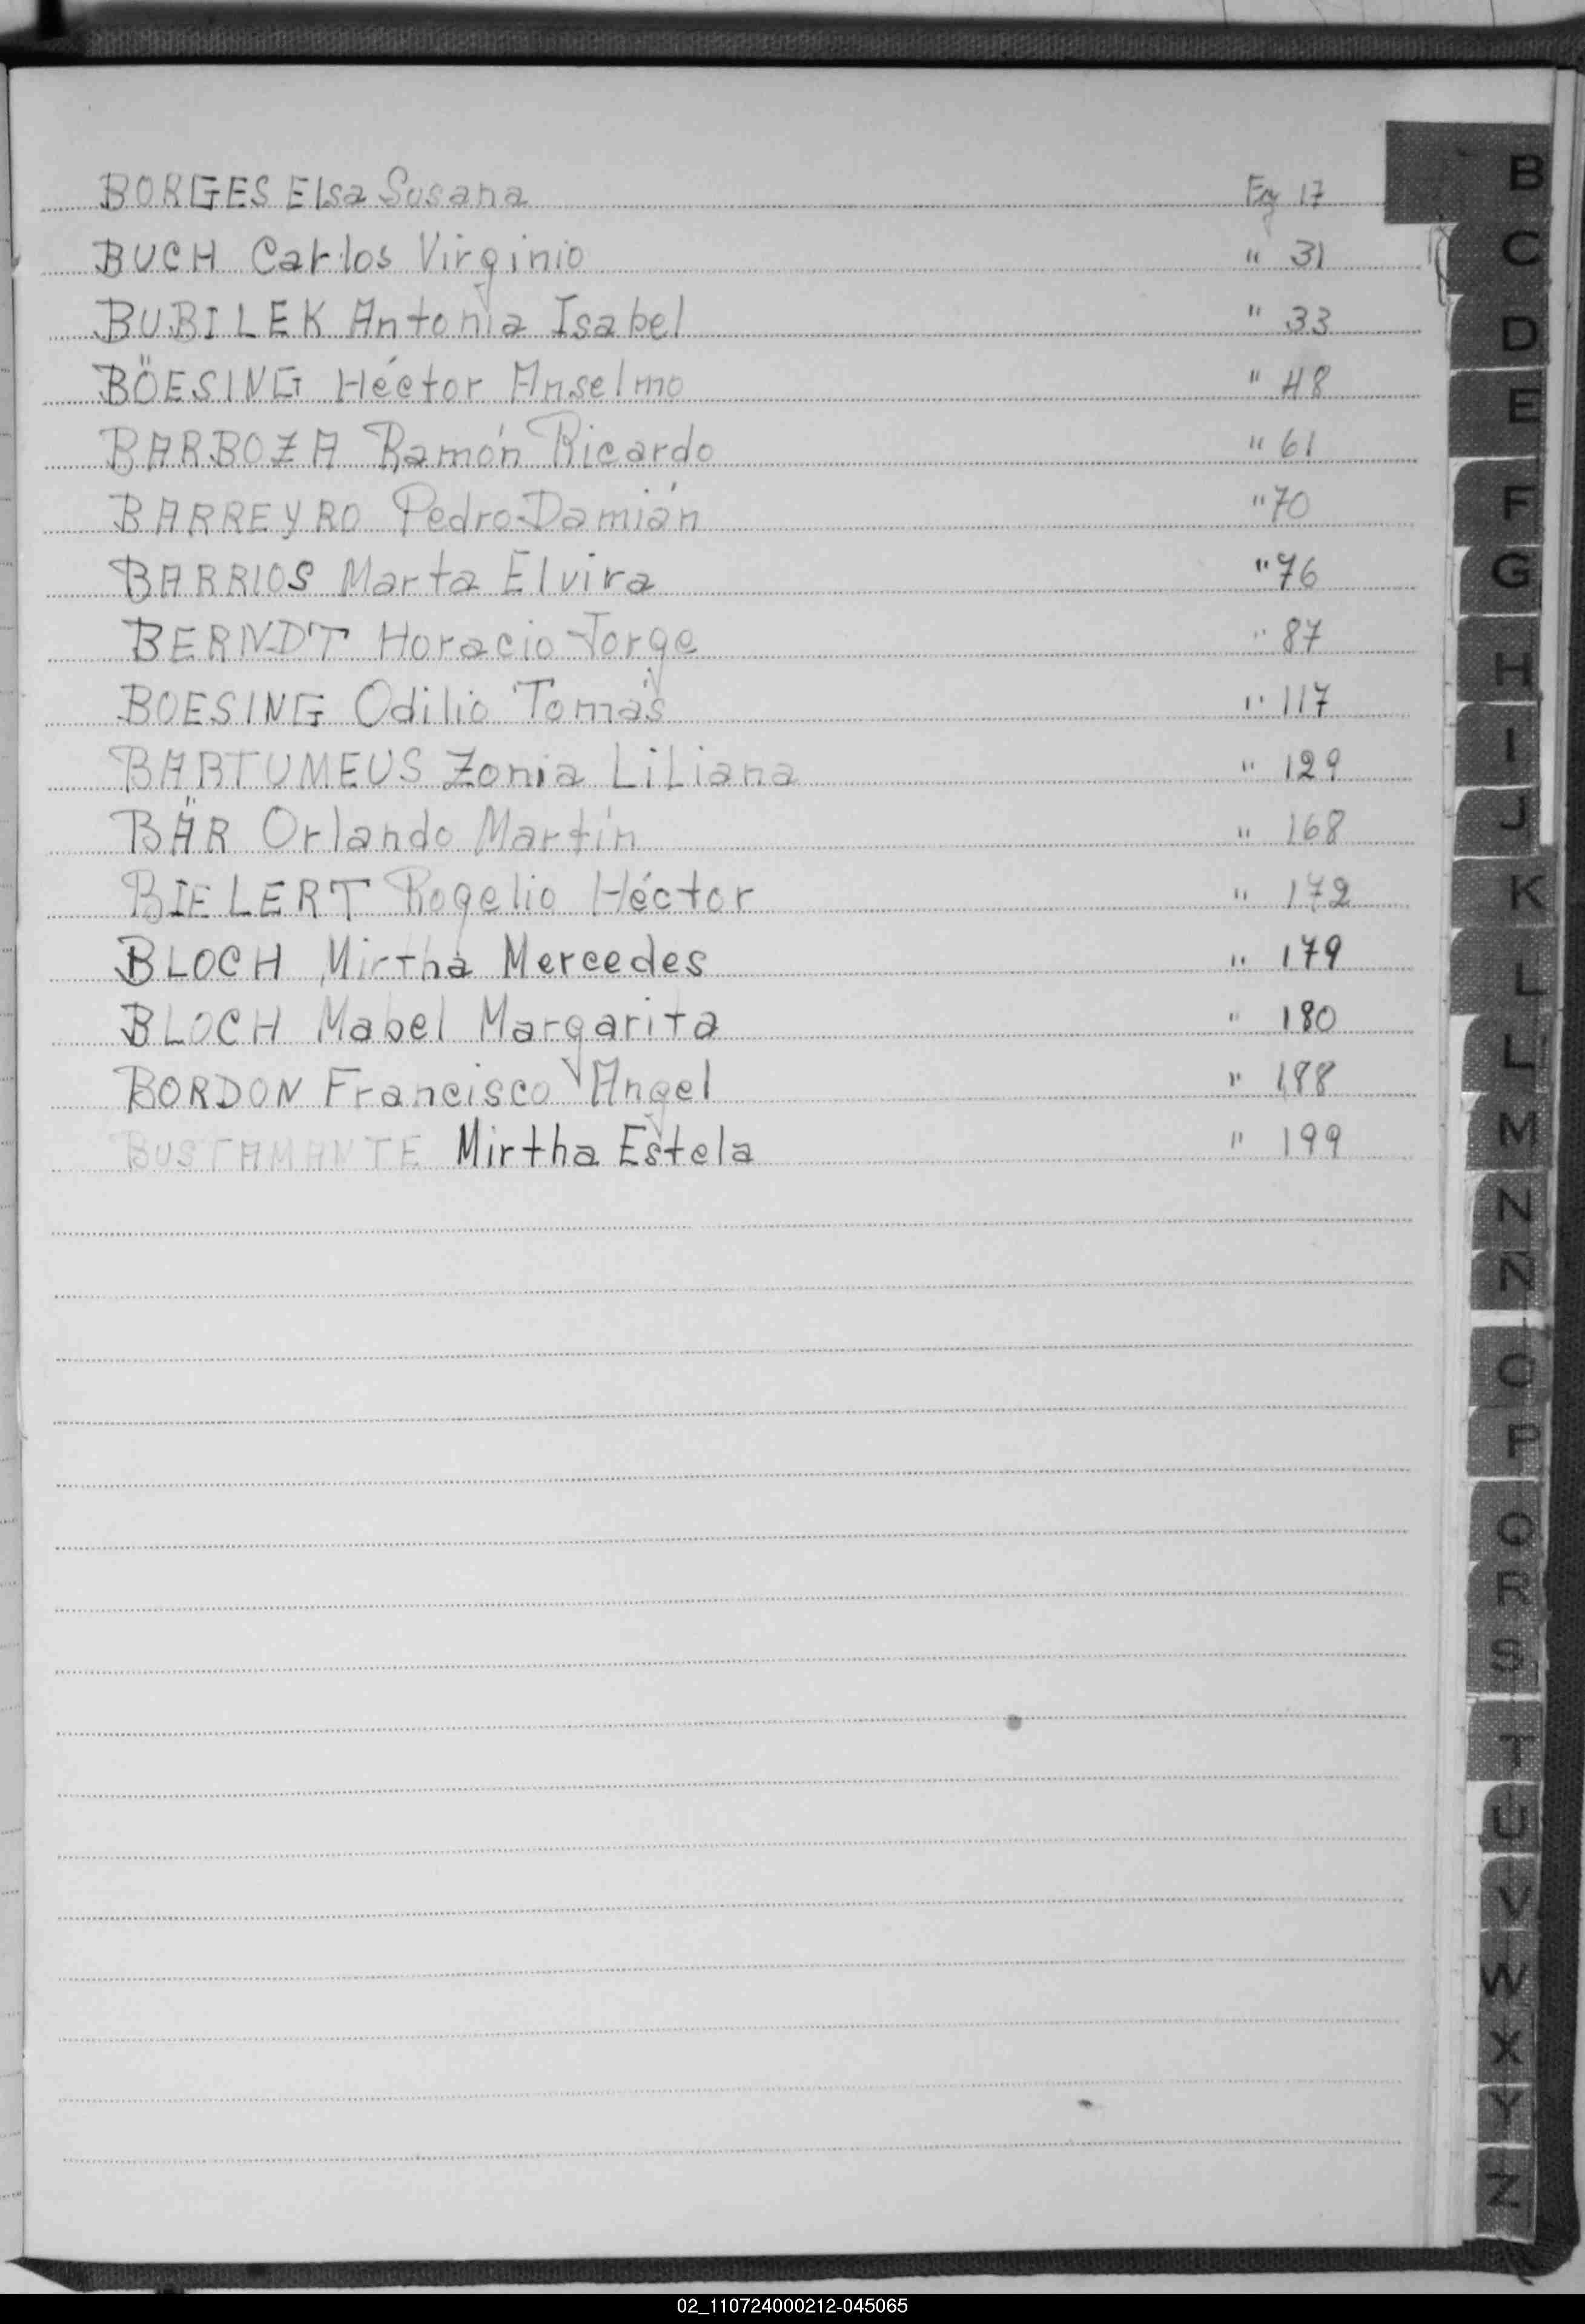 BORGES Elsa Susana Fg 17
BUCH Carlos Virginio " 31
BUBILEK Antonia Isabel " 33
BÖESING Héctor Anselmo " 48
BARBOZA Ramón Ricardo " 61
BARREYRO Pedro Damián " 70
BARRIOS Marta Elvira " 76
BERNDT Horacio Jorge " 87
BOESING Odilio Tomás " 117
BABTUMEUS Zonia LiLiana " 129
BÄR Orlando Martín " 168
BIELERT Rogelio Héctor " 172
BLOCH Mirtha Mercedes " 179
BLOCH Mabel Margarita " 180
BORDON Francisco Angel " 188
BUSTAMANTE Mirtha Estela " 199
B
C
D
E
F
G
H
I
J
K
L
L
M
N
N
O
P
Q
R
S
T
U
V
W
X
Y
Z
02_110724000212-045065